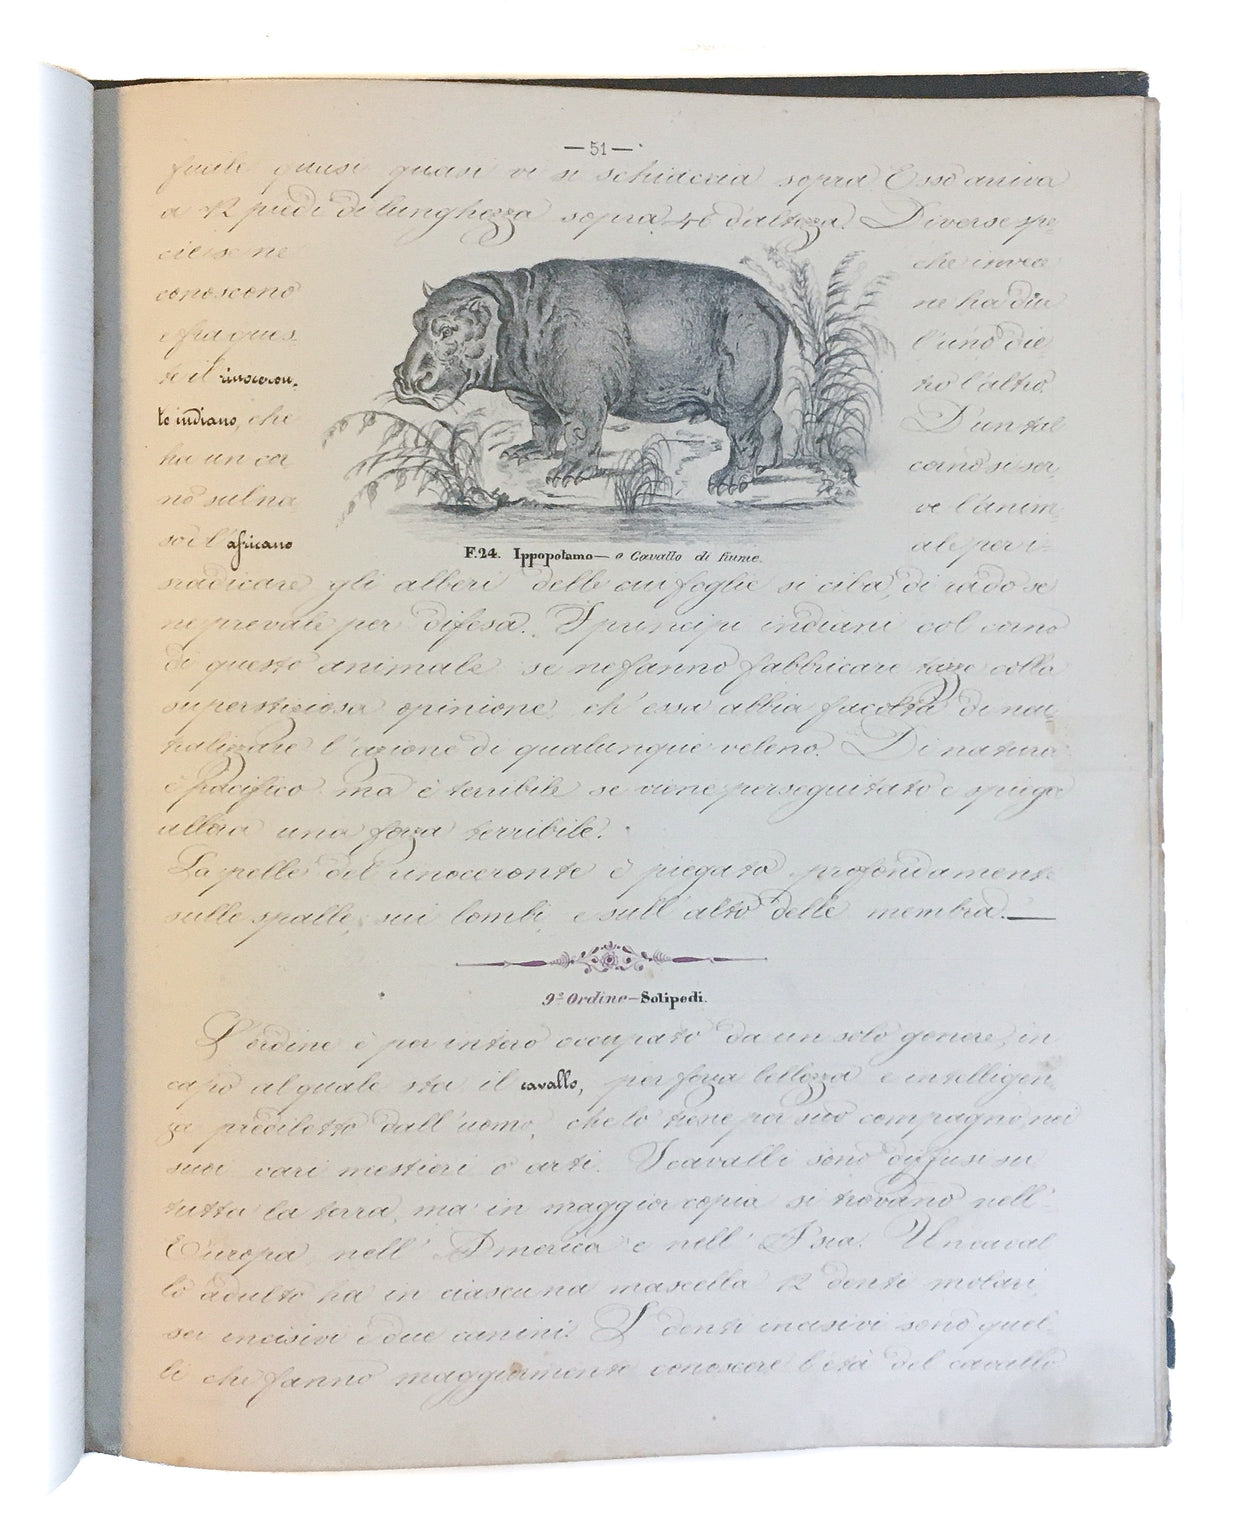 —51—
facile quasi quasi vi si schiaccia sopra. Esso arriva
a 12 piedi di lunghezza sopra 46 d'altezza. Diverse spe
cie se ne
conoscono
e fra ques
te il rinoceron,
te indiano, che
ha un cor
no sul na
so e l'africano
che invece
ne ha due
l'uno die
tro l'altro.
D'un tal
corno si ser
ve l'anim
ale per i=
F.24. Ippopotamo — o Cavallo di fiume.
sradicare gli alberi delle cui foglie si ciba, di rado se
ne prevale per difesa. I principi indiani col corno
di questo animale se ne fanno fabbricare tazze colla
superstiziosa opinione, ch'essa abbia facoltà di neu
tralizzare l'azione di qualunque veleno. Di natura
è pacifico ma è terribile se viene perseguitato e spiega
allora una forza terribile.
La pelle del rinoceronte è piegata profondamente
sulle spalle, sui lombi, e sull'alto delle membra.—
9º Ordine—Solipedi.
L'ordine è per intero occupato da un solo genere, in
capo al quale sta il cavallo, per forza bellezza e intelligen
za prediletto dall'uomo, che lo tiene per suo compagno nei
suoi vari mestieri o arti. I cavalli sono diffusi su
tutta la terra, ma in maggior copia si trovano nell'
Europa, nell'America e nell'Asia. Un caval
lo adulto ha in ciascuna mascella 12 denti molari,
sei incisivi e due canini. I denti incisivi sono quel
li che fanno maggiormente conoscere l'età del cavallo